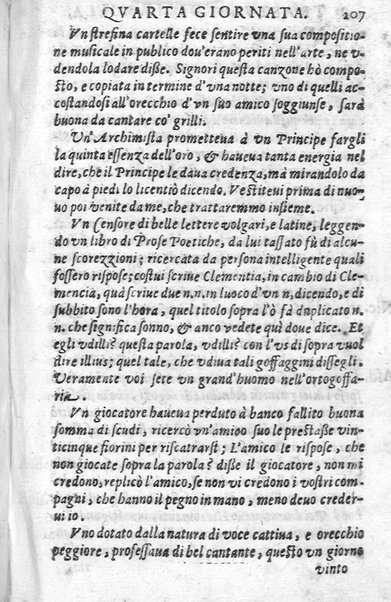 QVARTA GIORNATA. 207
Vn strefina cartelle fece sentire vna sua compositione
musicale in publico dou'erano periti nell'arte, ne v-
dendola lodare diße. Signori questa canzone hò compo-
sto, e copiata in termine d'vna notte; vno di quelli ac-
costandosi all'orecchio d'vn suo amico soggiunse, sarà
buona da cantare co' grilli.
Vn' Archimista prometteua à vn Principe fargli
la quinta essenza dell'oro, & haueua tanta energia nel
dire, che il Principe le daua credenza, mà mirandolo da
capo à piedi lo licentiò dicendo. Vestiteui prima di nuo-
uo poi venite da me, che trattaremmo insieme.
Vn Censore di belle lettere volgari, e latine, leggen-
do vn libro di Prose Poetiche, da lui tassato fù di alcu-
ne scorezzioni; ricercata da persona intelligente quali
fossero rispose; costui scriue Clementia, in cambio di Cle-
mencia, quà scriue due n.n. in luoco d'vn n, dicendo, e di
subbito sono l'hora, quel titolo sopra l'ò fà duplicato n.
n. che significa sonno, & anco vedete quà doue dice. Et
egli vdillis questa parola, vdillis con l'vs di sopra vuol
dire illius; quel tale, che vdiua tali goffaggini disse gli.
Veramente voi sete vn grand'huomo nell'ortogoffa-
ria.
Vn giocatore haueua perduto à banco fallito buona
somma di scudi, ricercò vn'amico suo le prestaße vin-
ticinque fiorini per riscatrarsi; L'amico le rispose, che
non giocate sopra la parola? diße il giocatore, non mi
credono, replicò l'amico, se non vi credono i vostri com-
pagni, che hanno il pegno in mano, meno deuo creder-
ui io.
Vno dotato dalla natura di voce cattiua, e orecchio
peggiore, professaua di bel cantante, questo vn giorno
vinto